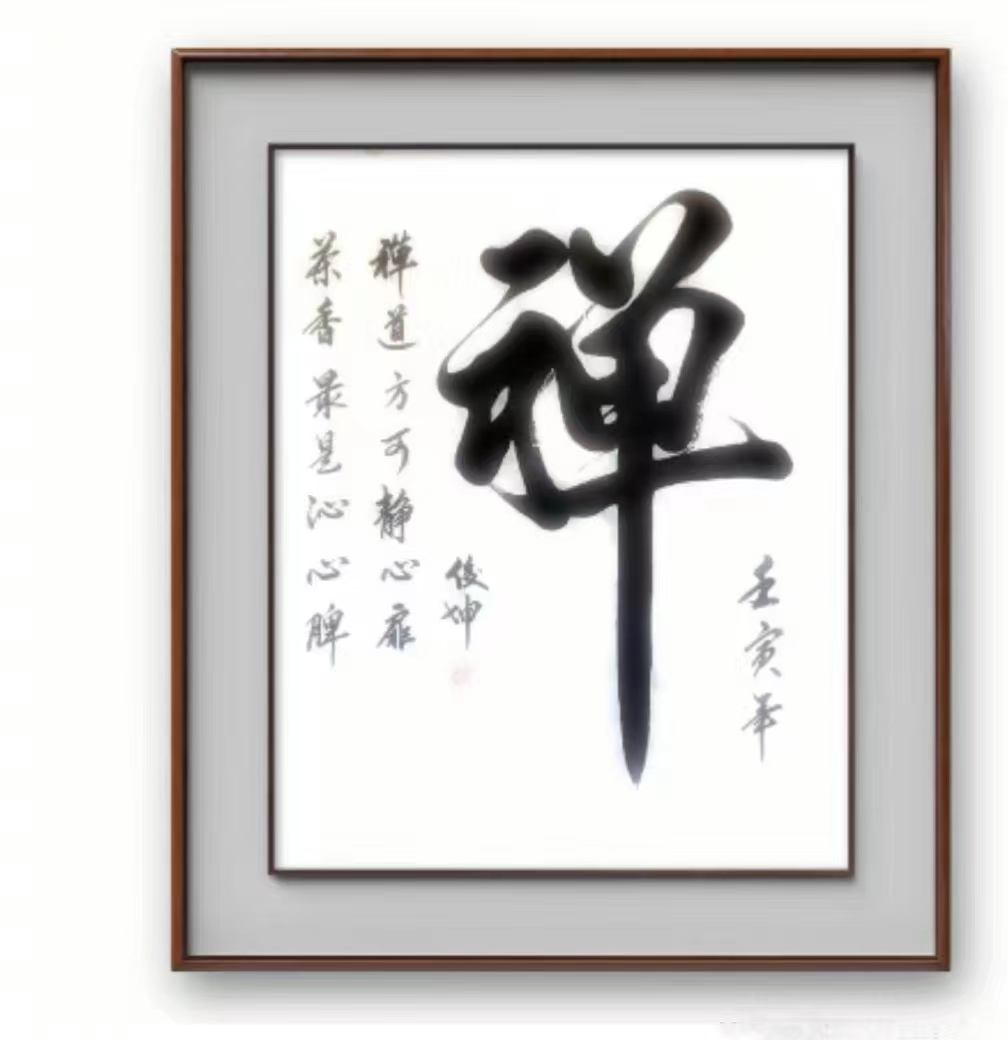 壬寅年
禅
禅道方可静心扉
茶香最是沁心脾
俊坤